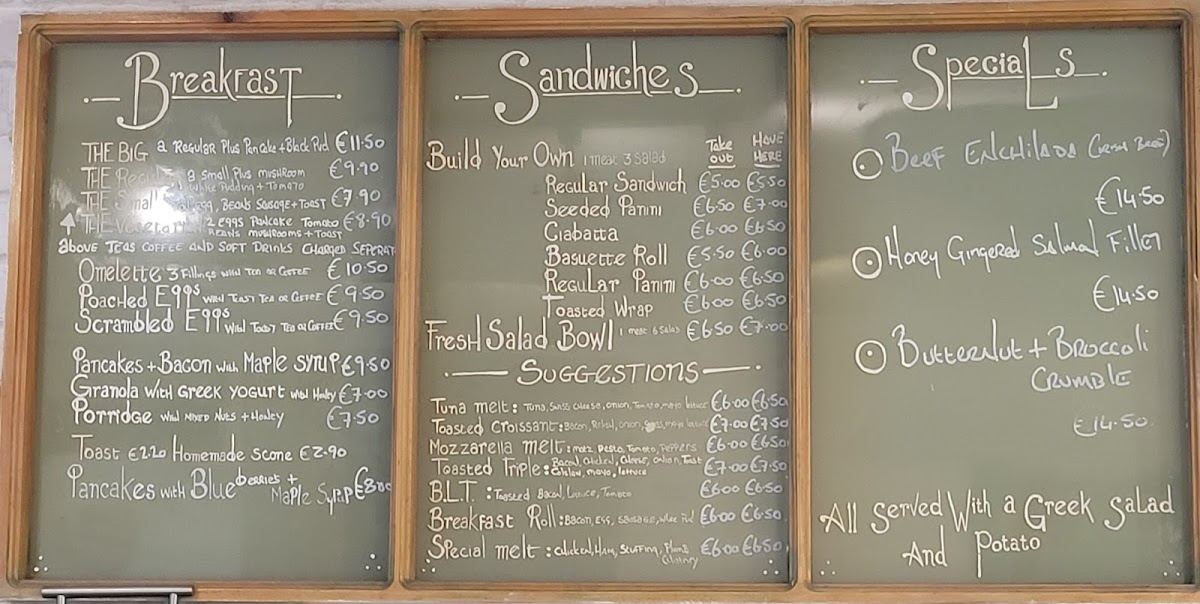 Breakfast
THE BIG a Regular Plus Pancake + Black Pud €11.50
THE Regular a small Plus mushroom €9.90
White Pudding + Tomato
THE Small Egg, Beans Sausage + Toast €7.90
THE Vegetarian 2 Eggs Pancake Tomato €8.90
Beans mushrooms + Toast
above Teas Coffee and Soft Drinks Charged Seperat
Omelette 3 Fillings with Tea or Coffee €10.50
Poached Eggs with Toast Tea or Coffee €9.50
Scrambled Eggs with Toast Tea or Coffee €9.50
Pancakes + Bacon with Maple Syrup €9.50
Granola with Greek yogurt with Honey €7.00
Porridge with mixed Nuts + Honey €7.50
Toast €2.20 Homemade Scone €2.90
Pancakes with Blueberries +
Maple Syrup €8.00
Sandwiches
Take out Have Here
Build Your Own 1 meat 3 salad
Regular Sandwich €5.00 €5.50
Seeded Panini €6.50 €7.00
Ciabatta €6.00 €6.50
Baguette Roll €5.50 €6.00
Regular Panini €6.00 €6.50
Toasted Wrap €6.00 €6.50
Fresh Salad Bowl 1 meat 6 Salad €6.50 €7.00
Suggestions
Tuna melt: Tuna, Swiss Cheese, onion, Tomato, mayo lettuce €6.00 €6.50
Toasted Croissant: Bacon, Relish, onion, Swiss, mayo lettuce €7.00 €7.50
Mozzarella melt: motz, Pesto, Tomato, Peppers €6.00 €6.50
Toasted Triple: Bacon, Chicken, Cheese, onion, Toast €7.00 €7.50
mayo, lettuce
B.L.T. : Toasted Bacon, Lettuce, Tomato €6.00 €6.50
Breakfast Roll: Bacon, Egg, Sausage, White Pud €6.00 €6.50
Special melt: Chicken, Ham, Stuffing, Plum €6.00 €6.50
Chutney
Specials
Beef Enchilada (Irish Beef)
€14.50
Honey Gingered Salmon Fillet
€14.50
Butternut + Broccoli
Crumble
€14.50
All Served With a Greek Salad
And Potato